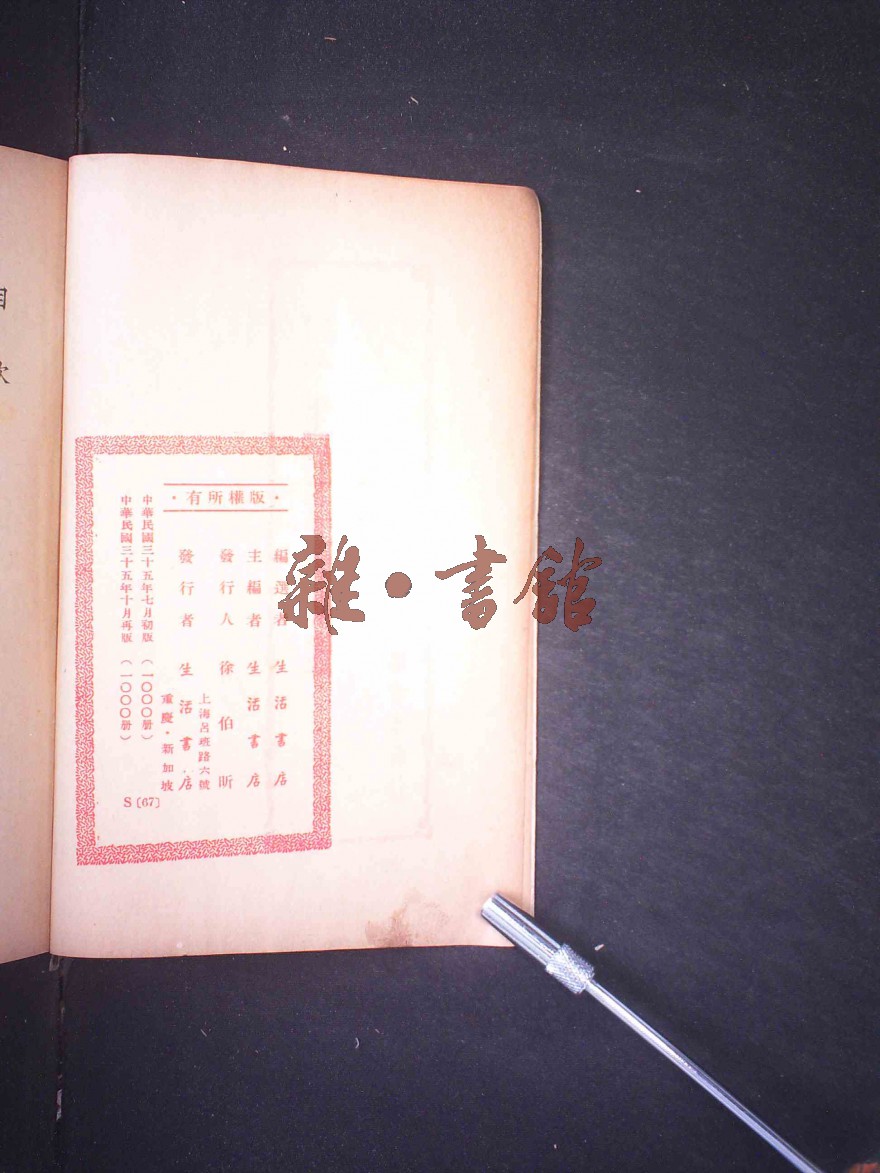 ·版權所有·
編選者 生活書店
主編者 生活書店
發行人 徐伯昕
上海呂班路六號
發行者 生活書店
重慶·新加坡
中華民國三十五年七月初版（一〇〇〇册）
中華民國三十五年十月再版（一〇〇〇册）
S〔67〕
雜·書館